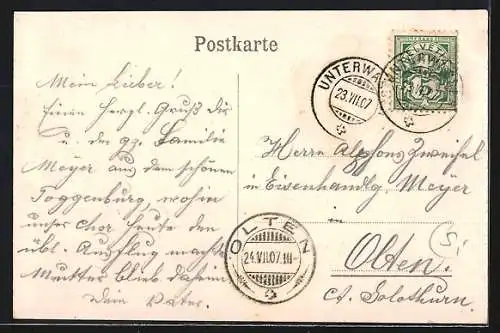 Postkarte
HELVETIA
UNTERWA
23.VII.07
Mein Lieber!
Einen herzl. Gruß dir
u. der gz. Familie
Meyer aus dem schönen
Toggenburg, wohin
unser Chor heute den
übl. Ausflug machte
Mutter blieb daheim
Dein Vater.
Herrn Alphons Zweifel
in Eisenhandlg. Meyer
Olten.
Ct. Solothurn
OLTEN
24.VII.07.III-